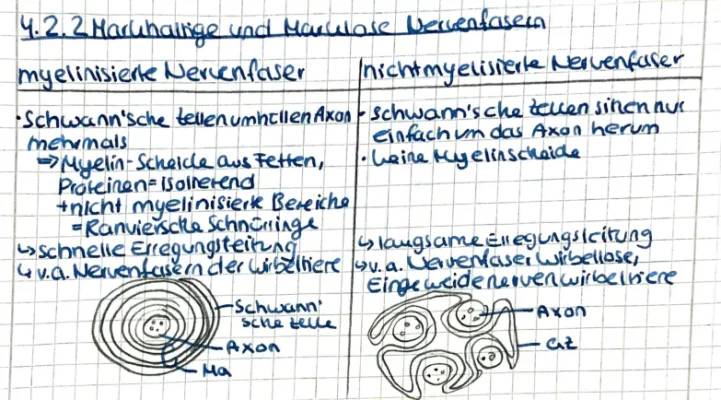 4.2.2 Markhaltige und Marklose Nervenfasern
myelinisierte Nervenfaser
• Schwann'sche Zellen umhüllen Axon
mehrmals
⇒ Myelin-Scheide aus Fetten,
Proteinen = Isolierend
+ nicht myelinisierte Bereiche
= Ranviersche Schnürringe
↳ schnelle Erregungsleitung
↳ v.a. Nervenfasern der Wirbeltiere
Schwann'
sche Zelle
Axon
Ma
nichtmyelisierte Nervenfaser
• Schwann'sche Zellen nur
einfach um das Axon herum
• keine Myelinscheide
↳ langsame Erregungsleitung
↳ v.a. Nervenfaser Wirbellose,
Eingeweidenerven Wirbeltiere
Axon